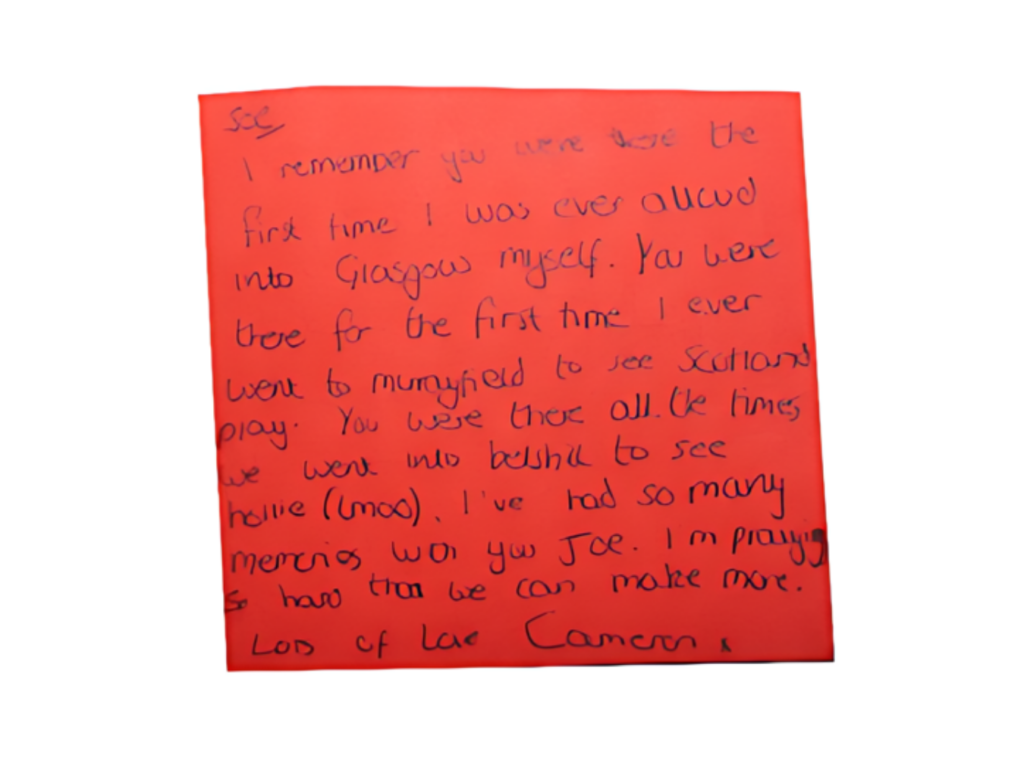 Joe
I remember you were there the
first time I was ever allowed
into Glasgow myself. You were
there for the first time I ever
went to murrayfield to see Scotland
play. You were there all the times
we went into bellshill to see
hollie (lmao). I've had so many
memories with you Joe. I'm praying
so hard that we can make more.
Lots of Love Cameron x